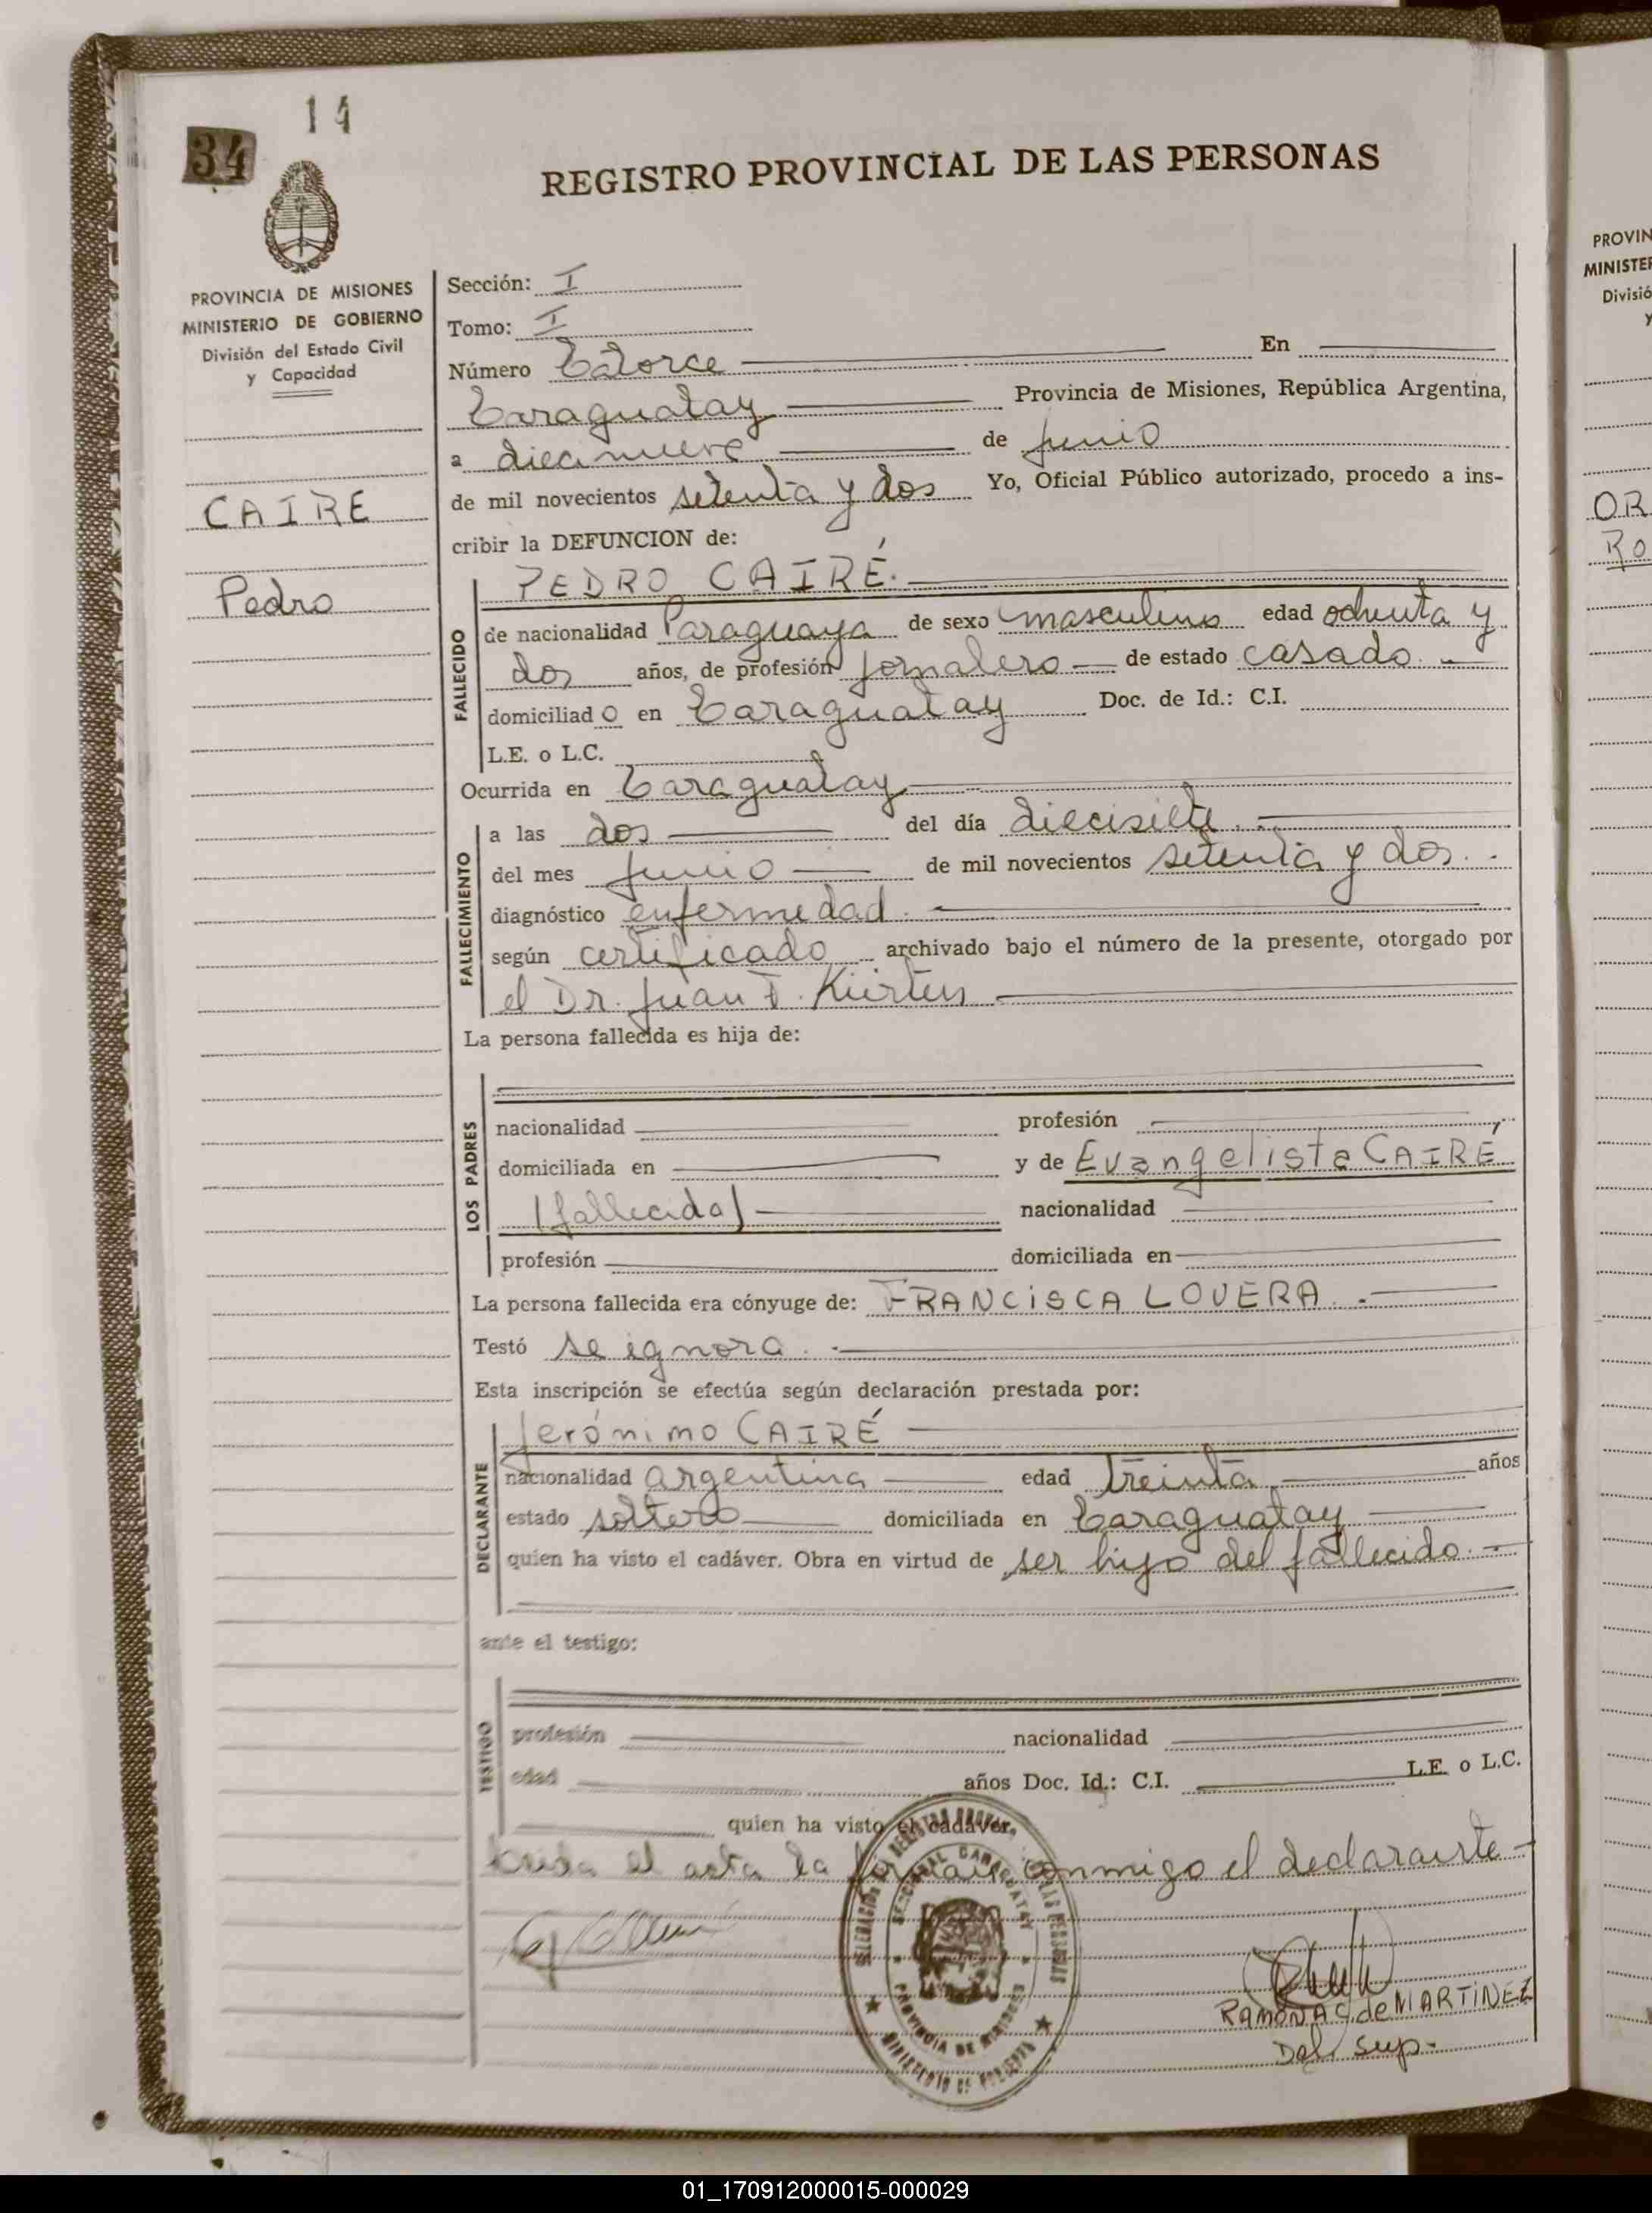 14
34
REGISTRO PROVINCIAL DE LAS PERSONAS
PROVINCIA DE MISIONES
MINISTERIO DE GOBIERNO
División del Estado Civil
y Capacidad
CAIRE
Pedro
Sección: I
Tomo: I
Número Catorce En
Caraguatay Provincia de Misiones, República Argentina,
a diecinueve de junio
de mil novecientos setenta y dos Yo, Oficial Público autorizado, procedo a ins-
cribir la DEFUNCION de:
FALLECIDO
PEDRO CAIRÉ.
de nacionalidad Paraguaya de sexo masculino edad ochenta y
dos años, de profesión jornalero de estado casado.
domiciliado en Caraguatay Doc. de Id.: C.I.
L.E. o L.C.
Ocurrida en Caraguatay
FALLECIMIENTO
a las dos del día diecisiete.
del mes junio de mil novecientos setenta y dos.
diagnóstico enfermedad.
según certificado archivado bajo el número de la presente, otorgado por
el Dr. Juan F. Kürten
La persona fallecida es hija de:
LOS PADRES
nacionalidad profesión
domiciliada en y de Evangelista CAIRÉ
(fallecida) nacionalidad
profesión domiciliada en
La persona fallecida era cónyuge de: FRANCISCA LOVERA.
Testó se ignora.
Esta inscripción se efectúa según declaración prestada por:
DECLARANTE
Jerónimo CAIRÉ
nacionalidad argentina edad treinta años
estado soltero domiciliada en Caraguatay
quien ha visto el cadáver. Obra en virtud de ser hijo del fallecido.
ante el testigo:
TESTIGO
profesión nacionalidad
edad años Doc. Id.: C.I. L.E. o L.C.
quien ha visto el cadáver.
el acta la firman conmigo el declarante
PROVINCIA DE MISIONES
MINISTERIO DE GOBIERNO
RAMONA G de MARTINEZ
Del. Sup.
PROVIN
MINISTER
Divisió
y
OR
Ro
01_170912000015-000029